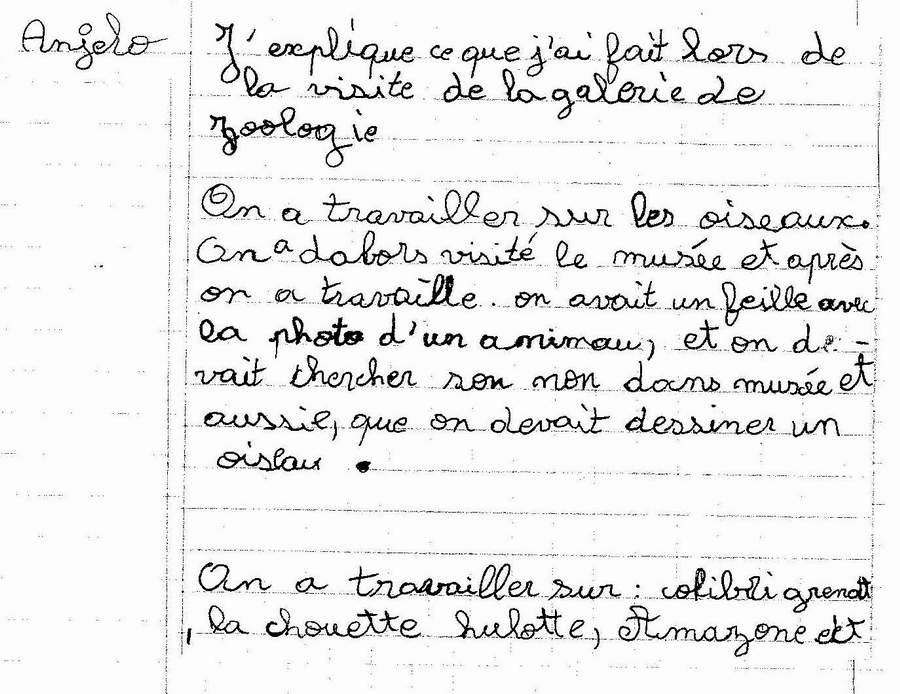 Anjelo
J'explique ce que j'ai fait lors de
la visite de la galerie de
zoologie
On a travailler sur les oiseaux.
On a dabors visité le musée et après
on a travaille. on avait un feille avec
la photo d'un animau, et on de-
vait chercher son non dans musée et
aussie, que on devait dessiner un
oislau.
On a travailler sur : colibri grenatt
, la chouette hulotte, Amazone ekt